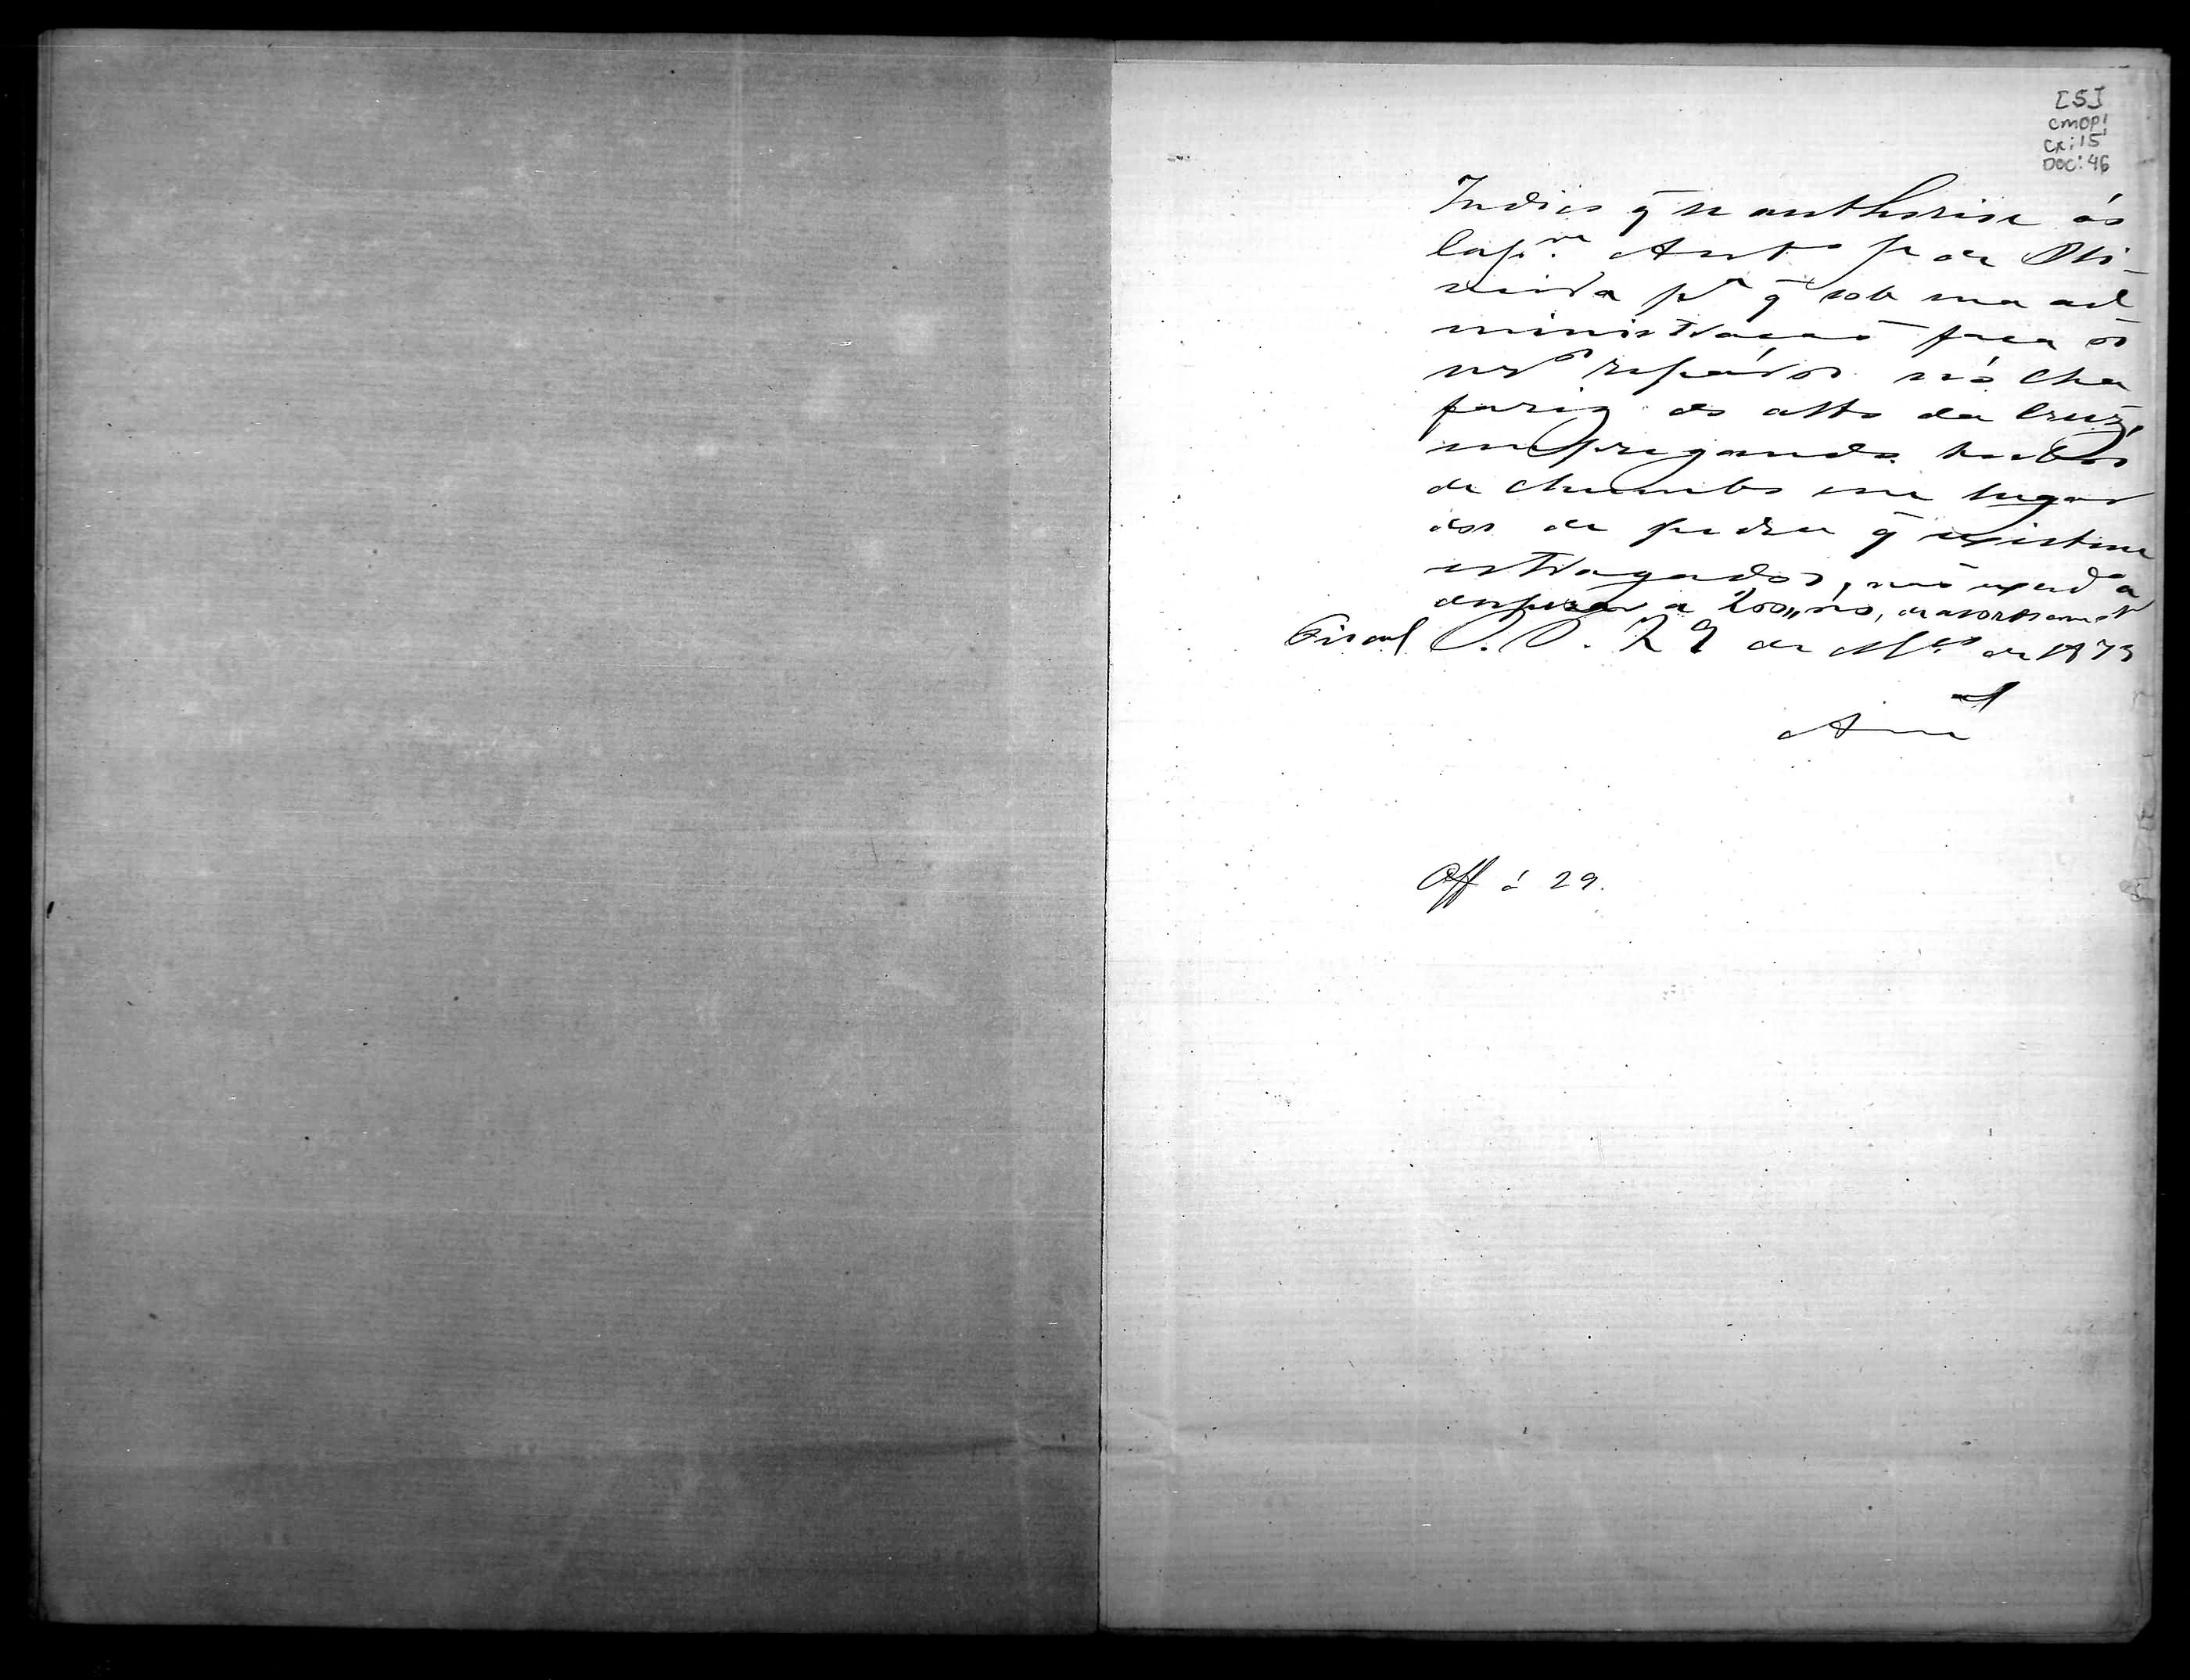 [5]
CMOP
Cx: 15
DOC: 46
Indico q̃ se authorise ao
Cap.m Ant.o de Oli-
veira p.a q̃ sob sua ad
ministração faça os
reparos no cha
fariz do alto da Cruz,
empregando tubos
de chumbo em lugar
dos de pedra q̃ existem
estragados, não exced a
despeza a 200,,rs,
Fiscal O. P. 29 de M.ço de 1873
Off á 29.